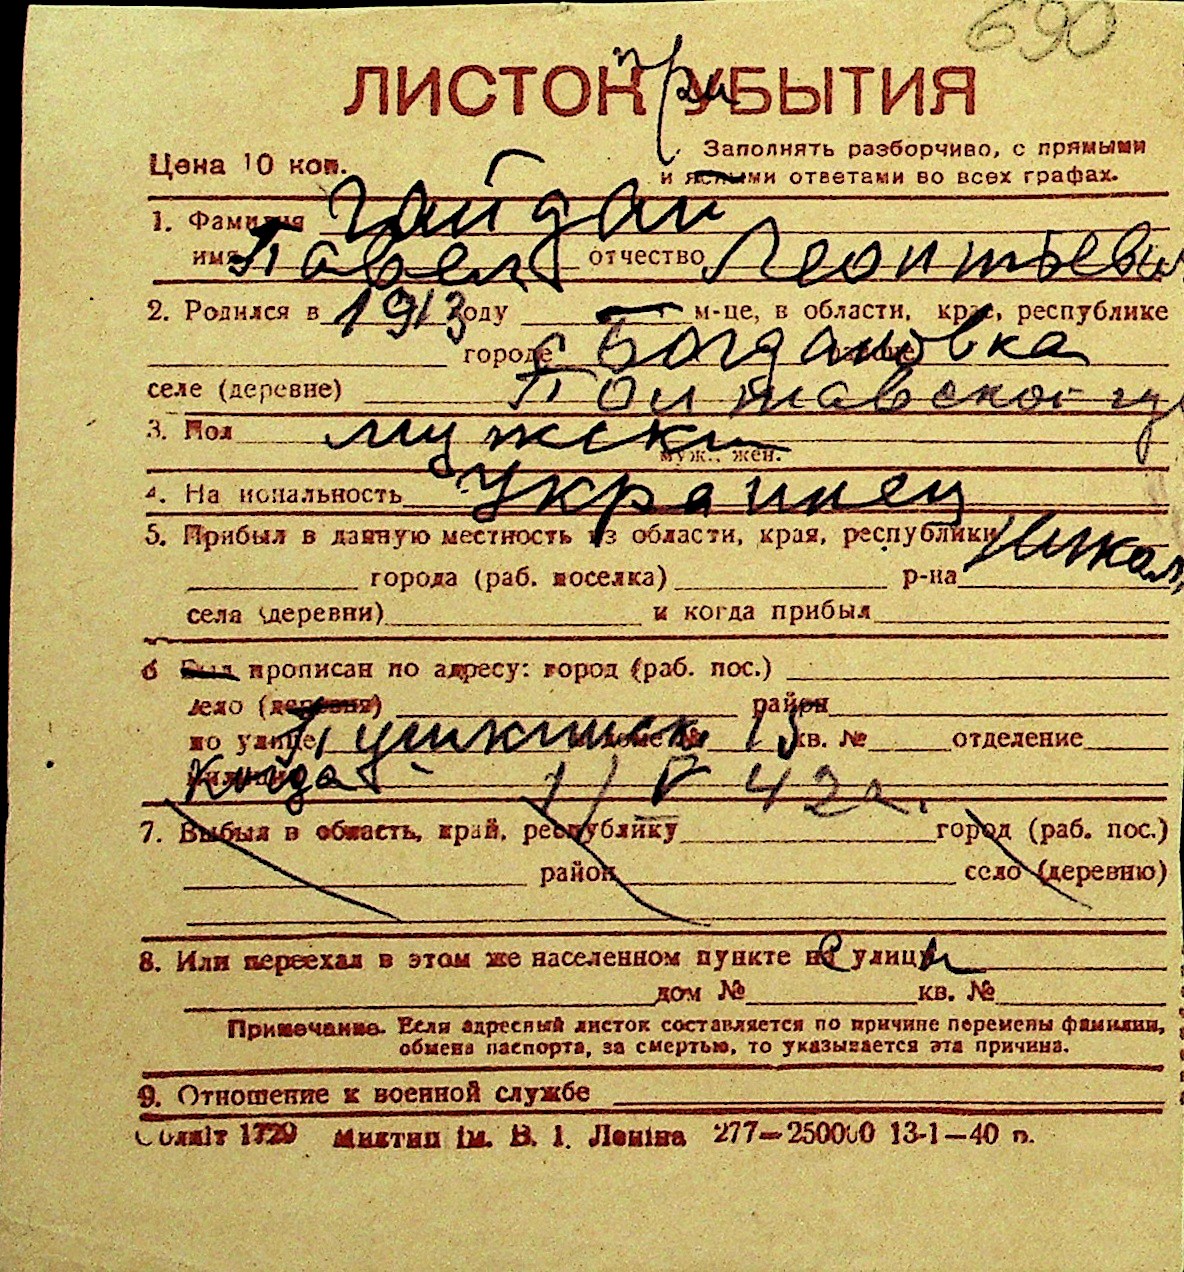 690
ЛИСТОК при УБЫТИЯ
Цена 10 коп.
Заполнять разборчиво, с прямыми
и ясными ответами во всех графах.
1. Фамилия Гайдай
имя Павел отчество Леонтьеви
2. Родился в 1913 году — м-це, в области, крае, республике
городе с Богдановка районе
селе (деревне) Полтавской гу
3. Пол мужски
муж., жен.
4. На иональность Украинец
5. Прибыл в данную местность из области, края, республики Никол
города (раб. поселка) р-на
села (деревни) и когда прибыл
6 Был прописан по адресу: город (раб. пос.)
село (деревня) район
по улице Пушкинск 15 кв. № отделение
Когда 1/V 42г.
7. Выбыл в область, край, республику город (раб. пос.)
район село (деревню)
8. Или переехал в этом же населенном пункте с улицы
дом № кв. №
Примечание. Если адресный листок составляется по причине перемены фамилии,
обмена паспорта, за смертью, то указывается эта причина.
9. Отношение к военной службе
Облліт 1729 Миктип ім. В. І. Леніна 277—250000 13-1—40 п.